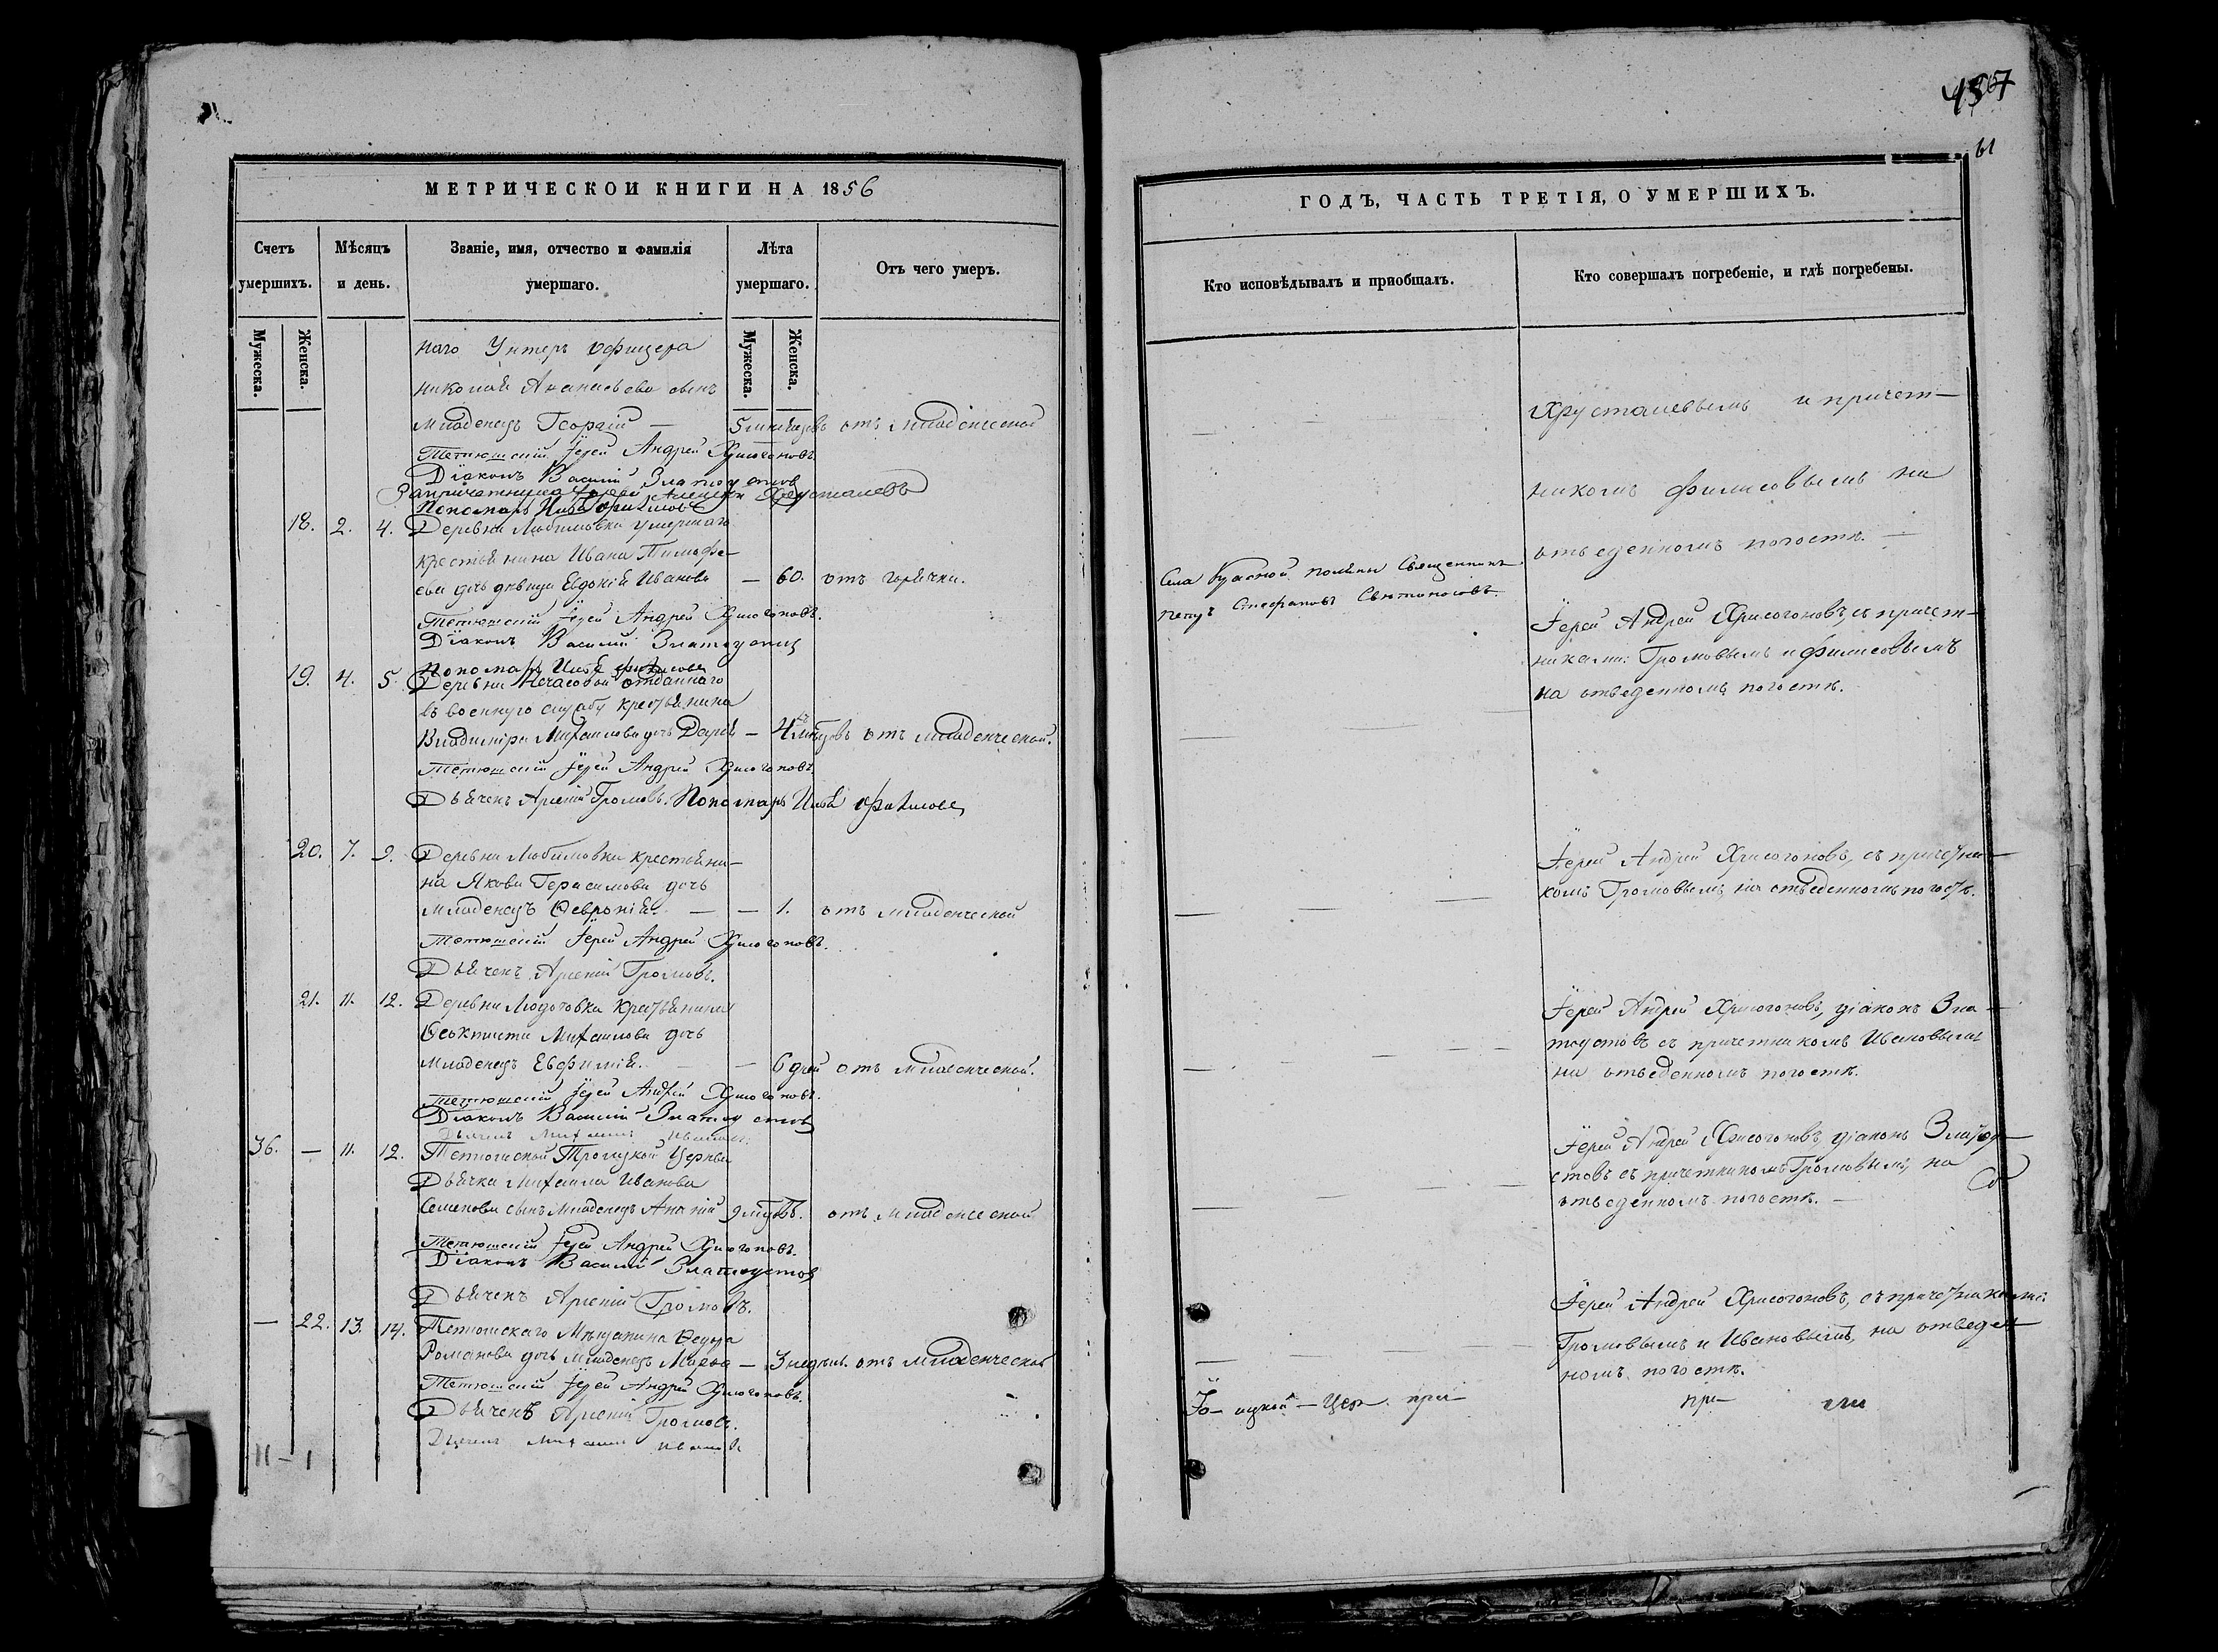 МЕТРИЧЕСКОЙ КНИГИ НА 1856
Счетъ умершихъ.
Мѣсяцъ и день.
Званіе, имя, отчество и фамилія умершаго.
Лѣта умершаго.
Отъ чего умеръ.
Мужеска.
Женска.
Мужеска.
Женска.
наго Унтеръ офицера
Николая Ананьева сынъ
младенецъ Георгій — 5 отъ младенческой
Тетюшскій Іерей Андрей Хрисогоновъ
Діаконъ Василій Златоустовъ
Хрусталевъ
18. 2. 4. Деревни Любимовки умершаго
крестьянина Ивана Тимофе-
ева дочь дѣвица Евдокія Иванова — 60. отъ горячки.
Тетюшскій Іерей Андрей Хрисогоновъ.
Діаконъ Василій Златоустовъ
Пономарь Илья
19. 4. 5. Деревни отданнаго
въ военную службу крестьянина
Владиміра Михаилова дочь Дарья — 4 отъ младенческой.
Тетюшскій Іерей Андрей Хрисогоновъ.
Дьячекъ Арсеній Громовъ. Пономарь Илья
20. 7. 9. Деревни Любимовки крестьяни-
на Якова Герасимова дочь
младенецъ Февронія. — — 1. отъ младенческой
Тетюшскій Іерей Андрей Хрисогоновъ.
Дьячекъ Арсеній Громовъ.
21. 11. 12. Деревни крестьянина
Феоктиста Михаилова дочь
младенецъ Евфимія. — 6 дней отъ младенческой.
Тетюшскій Іерей Андрей Хрисогоновъ.
Діаконъ Василій Златоустовъ
Дьячекъ Михаилъ Ивановъ
36. — 11. 12. Тетюшской Троицкой Церкви
Дьячка Михаила Иванова
Семенова сынъ младенецъ 9 отъ младенческой
Тетюшскій Іерей Андрей Хрисогоновъ.
Діаконъ Василій Златоустовъ
Дьячекъ Арсеній Громовъ.
— 22. 13. 14. Тетюшскаго Мѣщанина Ѳедора
Романова дочь младенецъ Марѳа — 3 недѣли. отъ младенческой
Тетюшскій Іерей Андрей Хрисогоновъ.
Дьячекъ Арсеній Громовъ.
Дьячекъ Михаилъ Ивановъ
11 – 1
ГОДЪ, ЧАСТЬ ТРЕТІЯ, О УМЕРШИХЪ.
Кто исповѣдывалъ и пріобщалъ.
Кто совершалъ погребеніе, и гдѣ погребены.
Хрусталевымъ и причет-
никомъ на
отведенномъ погостѣ. —
Села Красной поляны Священникъ
Петръ Стефановъ
Іерей Андрей Хрисогоновъ, съ причет-
никами: Громовымъ и
на отведенномъ погостѣ.
Іерей Андрей Хрисогоновъ, съ причетни-
комъ Громовымъ, на отведенномъ погостѣ.
Іерей Андрей Хрисогоновъ, діаконъ Зла-
тоустовъ съ причетникомъ Ивановымъ
на отведенномъ погостѣ.
Іерей Андрей Хрисогоновъ, діаконъ Златоу-
стовъ съ причетникомъ Громовымъ, на
отведенномъ погостѣ. —
Іерей Андрей Хрисогоновъ, съ причетниками:
Громовымъ и Ивановымъ, на отведен-
номъ погостѣ.
ицкой – Цер при-
при-